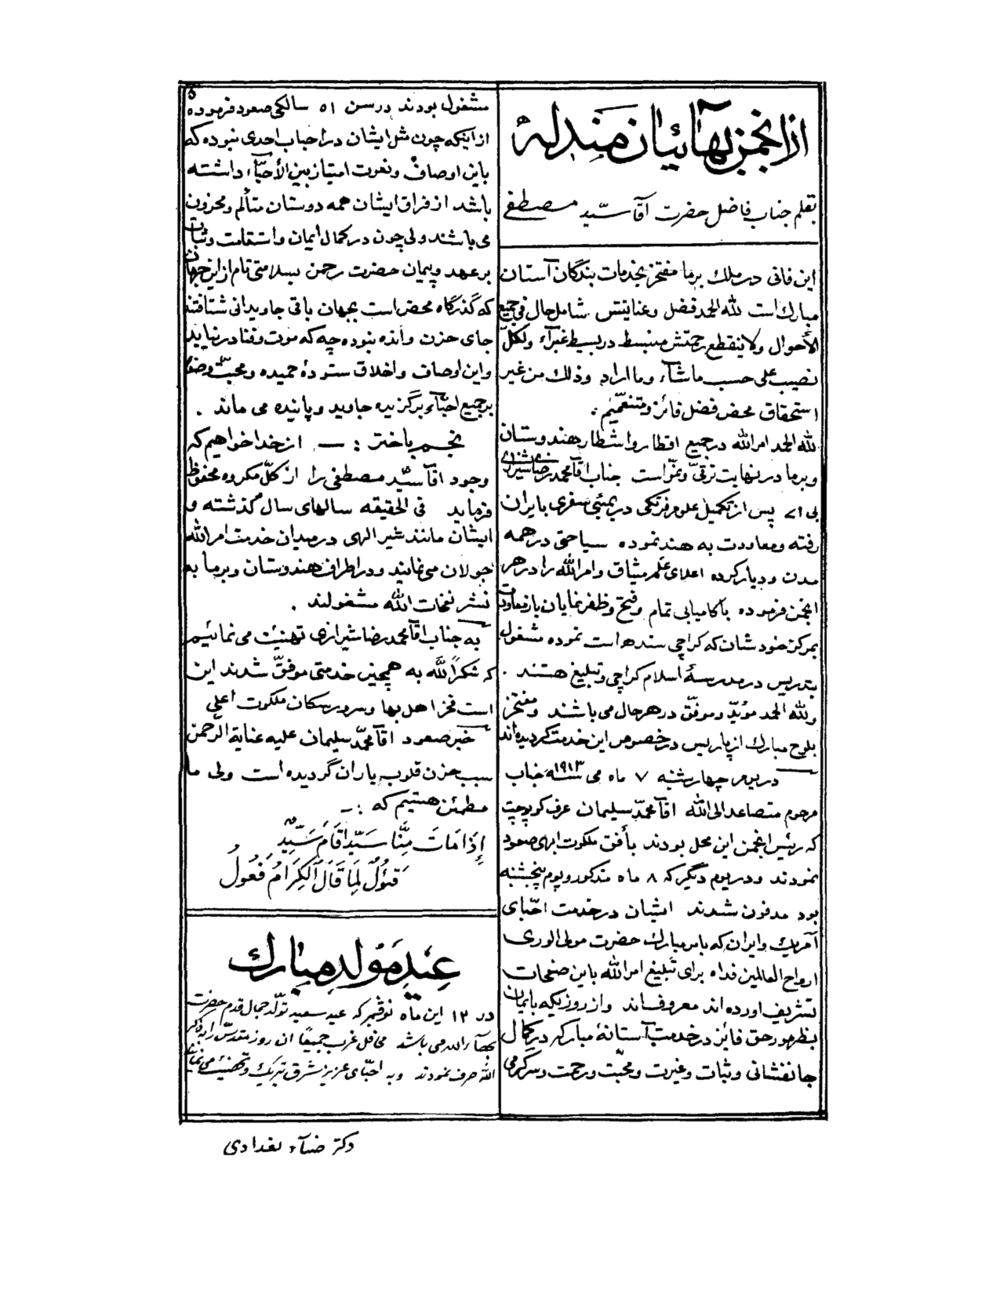 از انجمن بهائیان مندله
بقلم جناب فاضل حضرت آقا سیّد مصطفی
این فانی در ملک برما مفتخر بخدمات بندگان آستان
مبارک است لله الحمد فضل و عنایتش شامل حال فی جمیع
الأحوال ولاینقطع رحمتش منبسط در بسیط غبراء ولکلّ
نصیب علی حسب ماشاء وما اراد وذلک من غیر
استحقاق محض فضل فائز ومتنعّمیم .
لله الحمد امرالله در جمیع اقطار واشطار هندوستان
وبرما در نهایت ترقّی ونموّ است جناب آقامحمد رضا شیرازی
بی اے پس از تکمیل علوم فرنگی در بمبئی سفری بایران
رفته ومعاودت به هند نموده سیاحتی در همه
مدن ودیار کرده اعلای علم میثاق وامرالله را در هر
انجمن فرموده باکامیابی تمام وفتح وظفر نمایان باز معاودت
بمرکز خودشان که کراچی سنده است نموده مشغول
بتدریس در مدرسهٔ اسلام کراچی وتبلیغ هستند .
ولله الحمد مؤیّد وموفّق در هر حال می باشند ومفتخر
بلوح مبارک از پاریس در خصوص این خدمت گردیده اند
در یوم چهارشنبه ۷ ماه می سنه ۱۹۱۳ جناب
مرحوم متصاعد الی الله آقا محمّد سلیمان عرف
که رئیس انجمن این محل بودند بأفق ملکوت ابهی صعود
نمودند ودر یوم دیگر که ۸ ماه مذکور ویوم پنجشنبه
بود مدفون شدند ایشان در خدمت احبّای
آمریک وایران که بامر مبارک حضرت مولی الوری
ارواح العالمین فداه برای تبلیغ امرالله باین صفحات
تشریف آورده اند معروف اند واز روزیکه بایمان
بظهور حق فائز در خدمت آستانهٔ مبارکه در کمال
جانفشانی وثبات وغیرت ومحبّت ورحمت وسرگرمی
مشغول بودند در سن ۵۱ سالگی صعود فرموده
از اینکه چون مثل ایشان در احباب احدی نبوده که
باین اوصاف ونعوت امتیاز بین الأحبّاء داشته
باشد از فراق ایشان همه دوستان متألم ومحزون
می باشند ولی چون در کمال ایمان واستقامت وثبات
بر عهد وپیمان حضرت رحمن بسلامتی تام از این جهان
که گذرگاه محض است بجهان باقی جاویدانی شتافتند
جای حزن واندُه نبوده چه که موت وفنا در نیاید
واین اوصاف واخلاق ستودهٔ حمیده ومحبّت وصفا
بر جمیع احبّاء برگزیده جاوید وپاینده می ماند .
نجم باختر : — از خدا خواهیم که
وجود آقا سیّد مصطفی را از کلّ مکروه محفوظ
فرماید فی الحقیقه سالهای سال گذشته و
ایشان مانند شیر الهی در میدان خدمت امرالله
جولان می نمایند ودر اطراف هندوستان وبرما به
نشر نفحات الله مشغولند .
به جناب آقا محمد رضا شیرازی تهنیت می نمائیم
که شکراً لله به همچنین خدمتی موفّق شدند این
است فخر اهل بها وسرور سکان ملکوت اعلی
خبر صعود آقا محمّد سلیمان علیه عنایة الرّحمن
سبب حزن قلوب یاران گردیده است ولی ما
مطمئن هستیم که : —
إِذَا مَاتَ مِنَّا سَیِّدٌ قَامَ سَیِّدٌ
قَئُولٌ لِمَا قَالَ ٱلْکِرَامُ فَعُولُ
عید مولد مبارک
در ۱۲ این ماه نوڤمبر که عید سعید تولّد جمال قدم حضرت
بهاء الله می باشد محافل غرب جمیعًا آن روز مقدّس را به ذکر
الله صرف نمودند وبه احبّای عزیز شرق تبریک وتهنیت می نمایند
دکتر ضیاء بغدادی